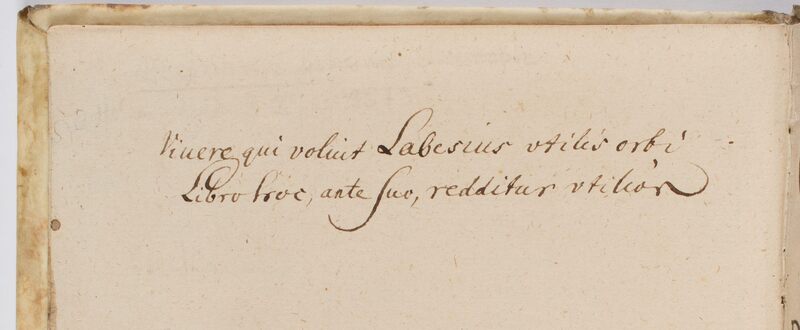 Viuere qui voluit Labesius vtilis orbi
Libro hoc, ante suo, redditur vtilior